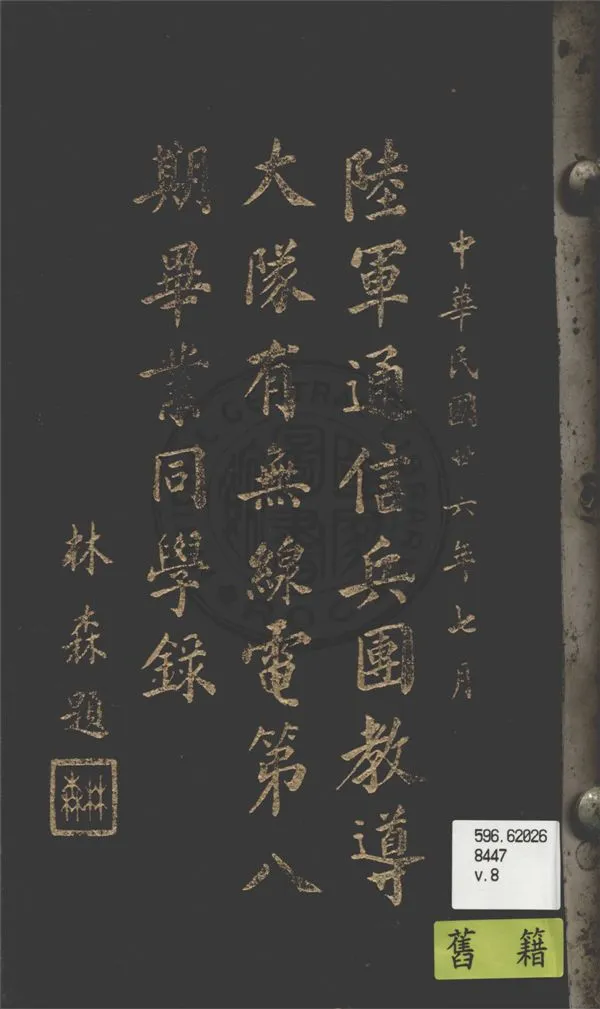 中華民國廿六年七月
陸軍通信兵團教導
大隊有無線電第八
期畢業同學錄
林森題
596.62026
8447
v.8
舊籍